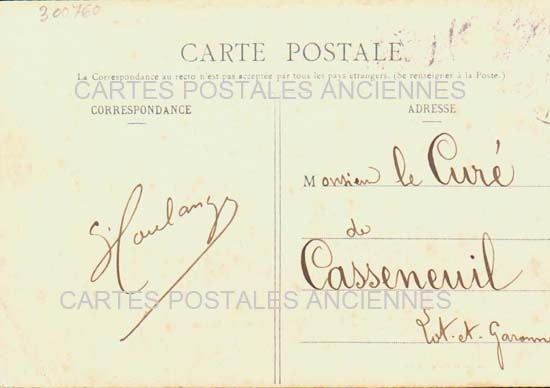 300760
CARTE POSTALE
La Correspondance au recto n'est pas acceptée par tous les pays étrangers. (Se renseigner à la Poste.)
CARTES POSTALES ANCIENNES
CORRESPONDANCE
ADRESSE
Monsieur le Curé
de
Casseneuil
CARTES POSTALES ANCIENNES
Lot-et-Garonn